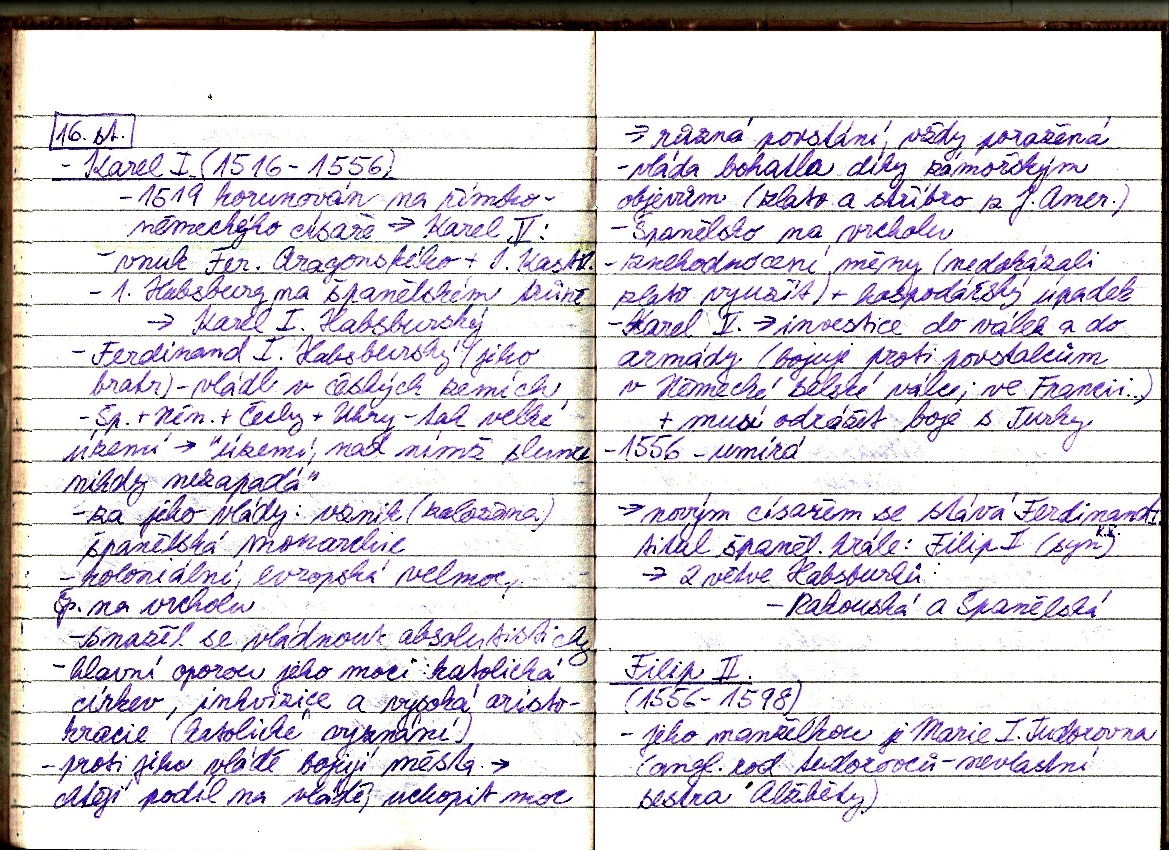 16. st.
- Karel I. (1516 - 1556)
- 1519 korunován na římsko-
německého císaře → Karel V.:
- vnuk Fer. Aragonského + I. Kastil.
- 1. Habsburg na španělském trůně
→ Karel I. Habsburský
- Ferdinand I. Habsburský (jeho
bratr) - vládl v českých zemích
- Šp. + Něm. + Čechy + Uhry - tak velké
území → "území, nad nímž slunce
nikdy nezapadá"
- za jeho vlády: vznik (založena)
španělská monarchie
- koloniální, evropská velmoc,
Šp. na vrcholu
- snažil se vládnout absolutisticky
- hlavní oporou jeho moci: katolická
církev, inkvizice a vysoká aristo-
kracie (katolické vyznání)
- proti jeho vládě bojují města →
chtějí podíl na vládě, uchopit moc
→ různá povstání, vždy poražená
- vláda bohatla díky zámořským
objevům (zlato a stříbro z J. Amer.)
- Španělsko na vrcholu
- znehodnocení měny (nedokázali
zlato využít) + hospodářský úpadek
- Karel V. → investice do válek a do
armády (bojuje proti povstalcům
v Německé selské válce; ve Francii..)
+ musí odrážet boje s Turky
- 1556 - umírá
→ novým císařem se stává Ferdinand I.
titul španěl. krále: Filip I (syn) K.I.
→ 2 větve Habsburků:
- Rakouská a Španělská
Filip II.
(1556 - 1598)
- jeho manželkou je Marie I. Tudorovna
(angl. rod tudorovců - nevlastní
sestra Alžběty)